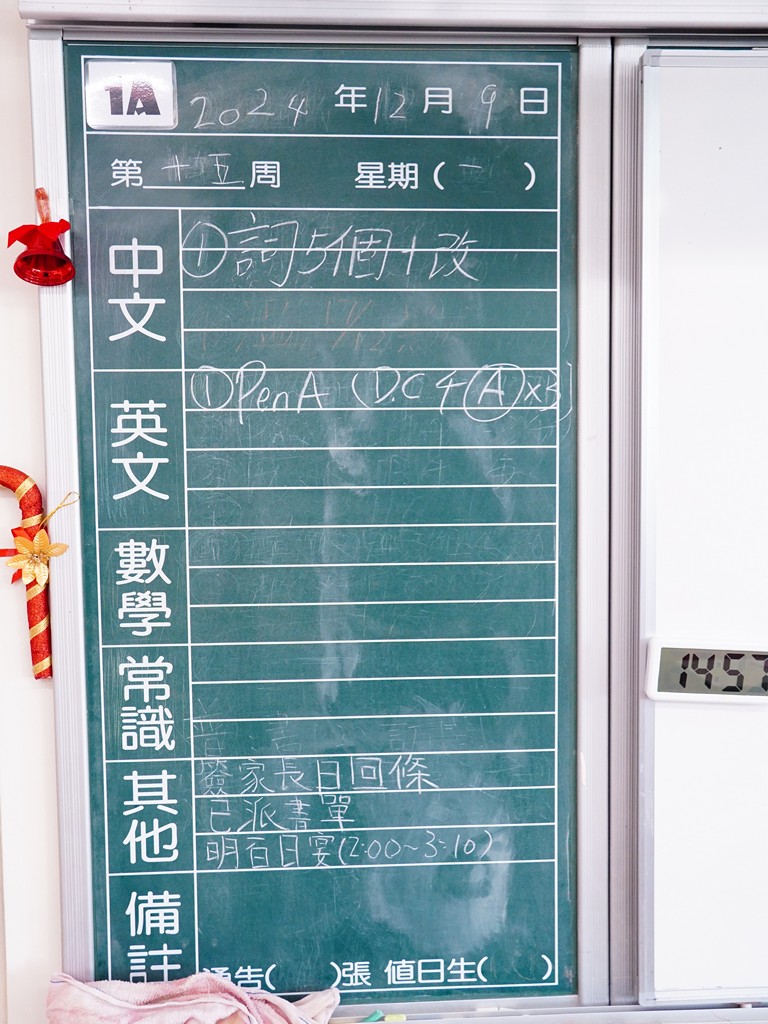 1A 2024年12月9日
第十五周 星期( )
中文
①詞5個+改
英文
①PenA (D.C4Ⓐx3)
數學
常識
其他
簽家長日回條
已派書單
明百日宴(2:00~3:10)
備註
通告( )張 值日生( )
14:57